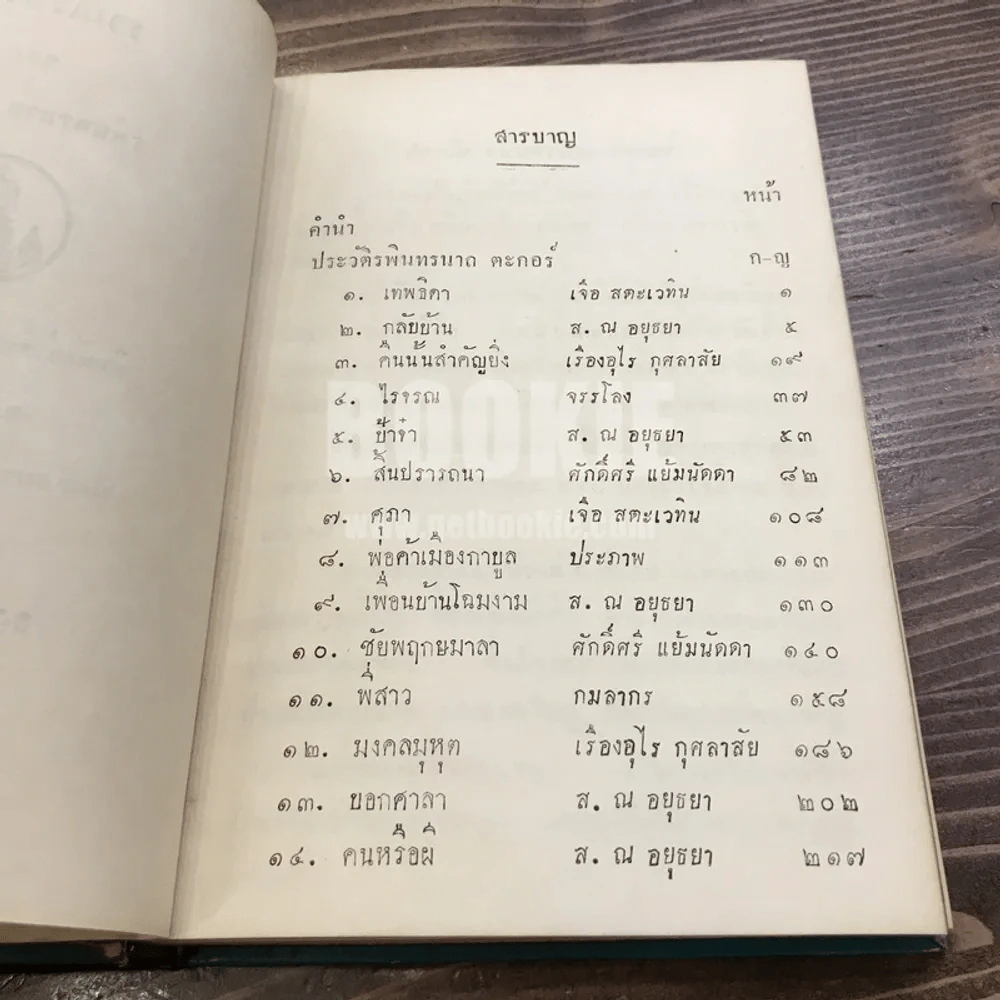 สารบาญ
หน้า
คำนำ
ประวัติรพินทรนาถ ตะกอร์ ก-ญ
๑. เทพธิดา เจือ สตะเวทิน ๑
๒. กลับบ้าน ส. ณ อยุธยา ๕
๓. คืนนั้นสำคัญยิ่ง เรืองอุไร กุศลาสัย ๑๙
๔. ไรจรณ จรรโลง ๓๗
๕. ป้าจ๋า ส. ณ อยุธยา ๕๓
๖. สิ้นปรารถนา ศักดิ์ศรี แย้มนัดดา ๘๒
๗. ศุภา เจือ สตะเวทิน ๑๐๘
๘. พ่อค้าเมืองกาบูล ประภาพ ๑๑๓
๙. เพื่อนบ้านโฉมงาม ส. ณ อยุธยา ๑๓๐
๑๐. ชัยพฤกษมาลา ศักดิ์ศรี แย้มนัดดา ๑๔๐
๑๑. พี่สาว กมลากร ๑๕๘
๑๒. มงคลมุหุต เรืองอุไร กุศลาสัย ๑๘๖
๑๓. บอกศาลา ส. ณ อยุธยา ๒๐๒
๑๔. คนหรือผี ส. ณ อยุธยา ๒๑๗
BOOKIE
www.getbookie.com